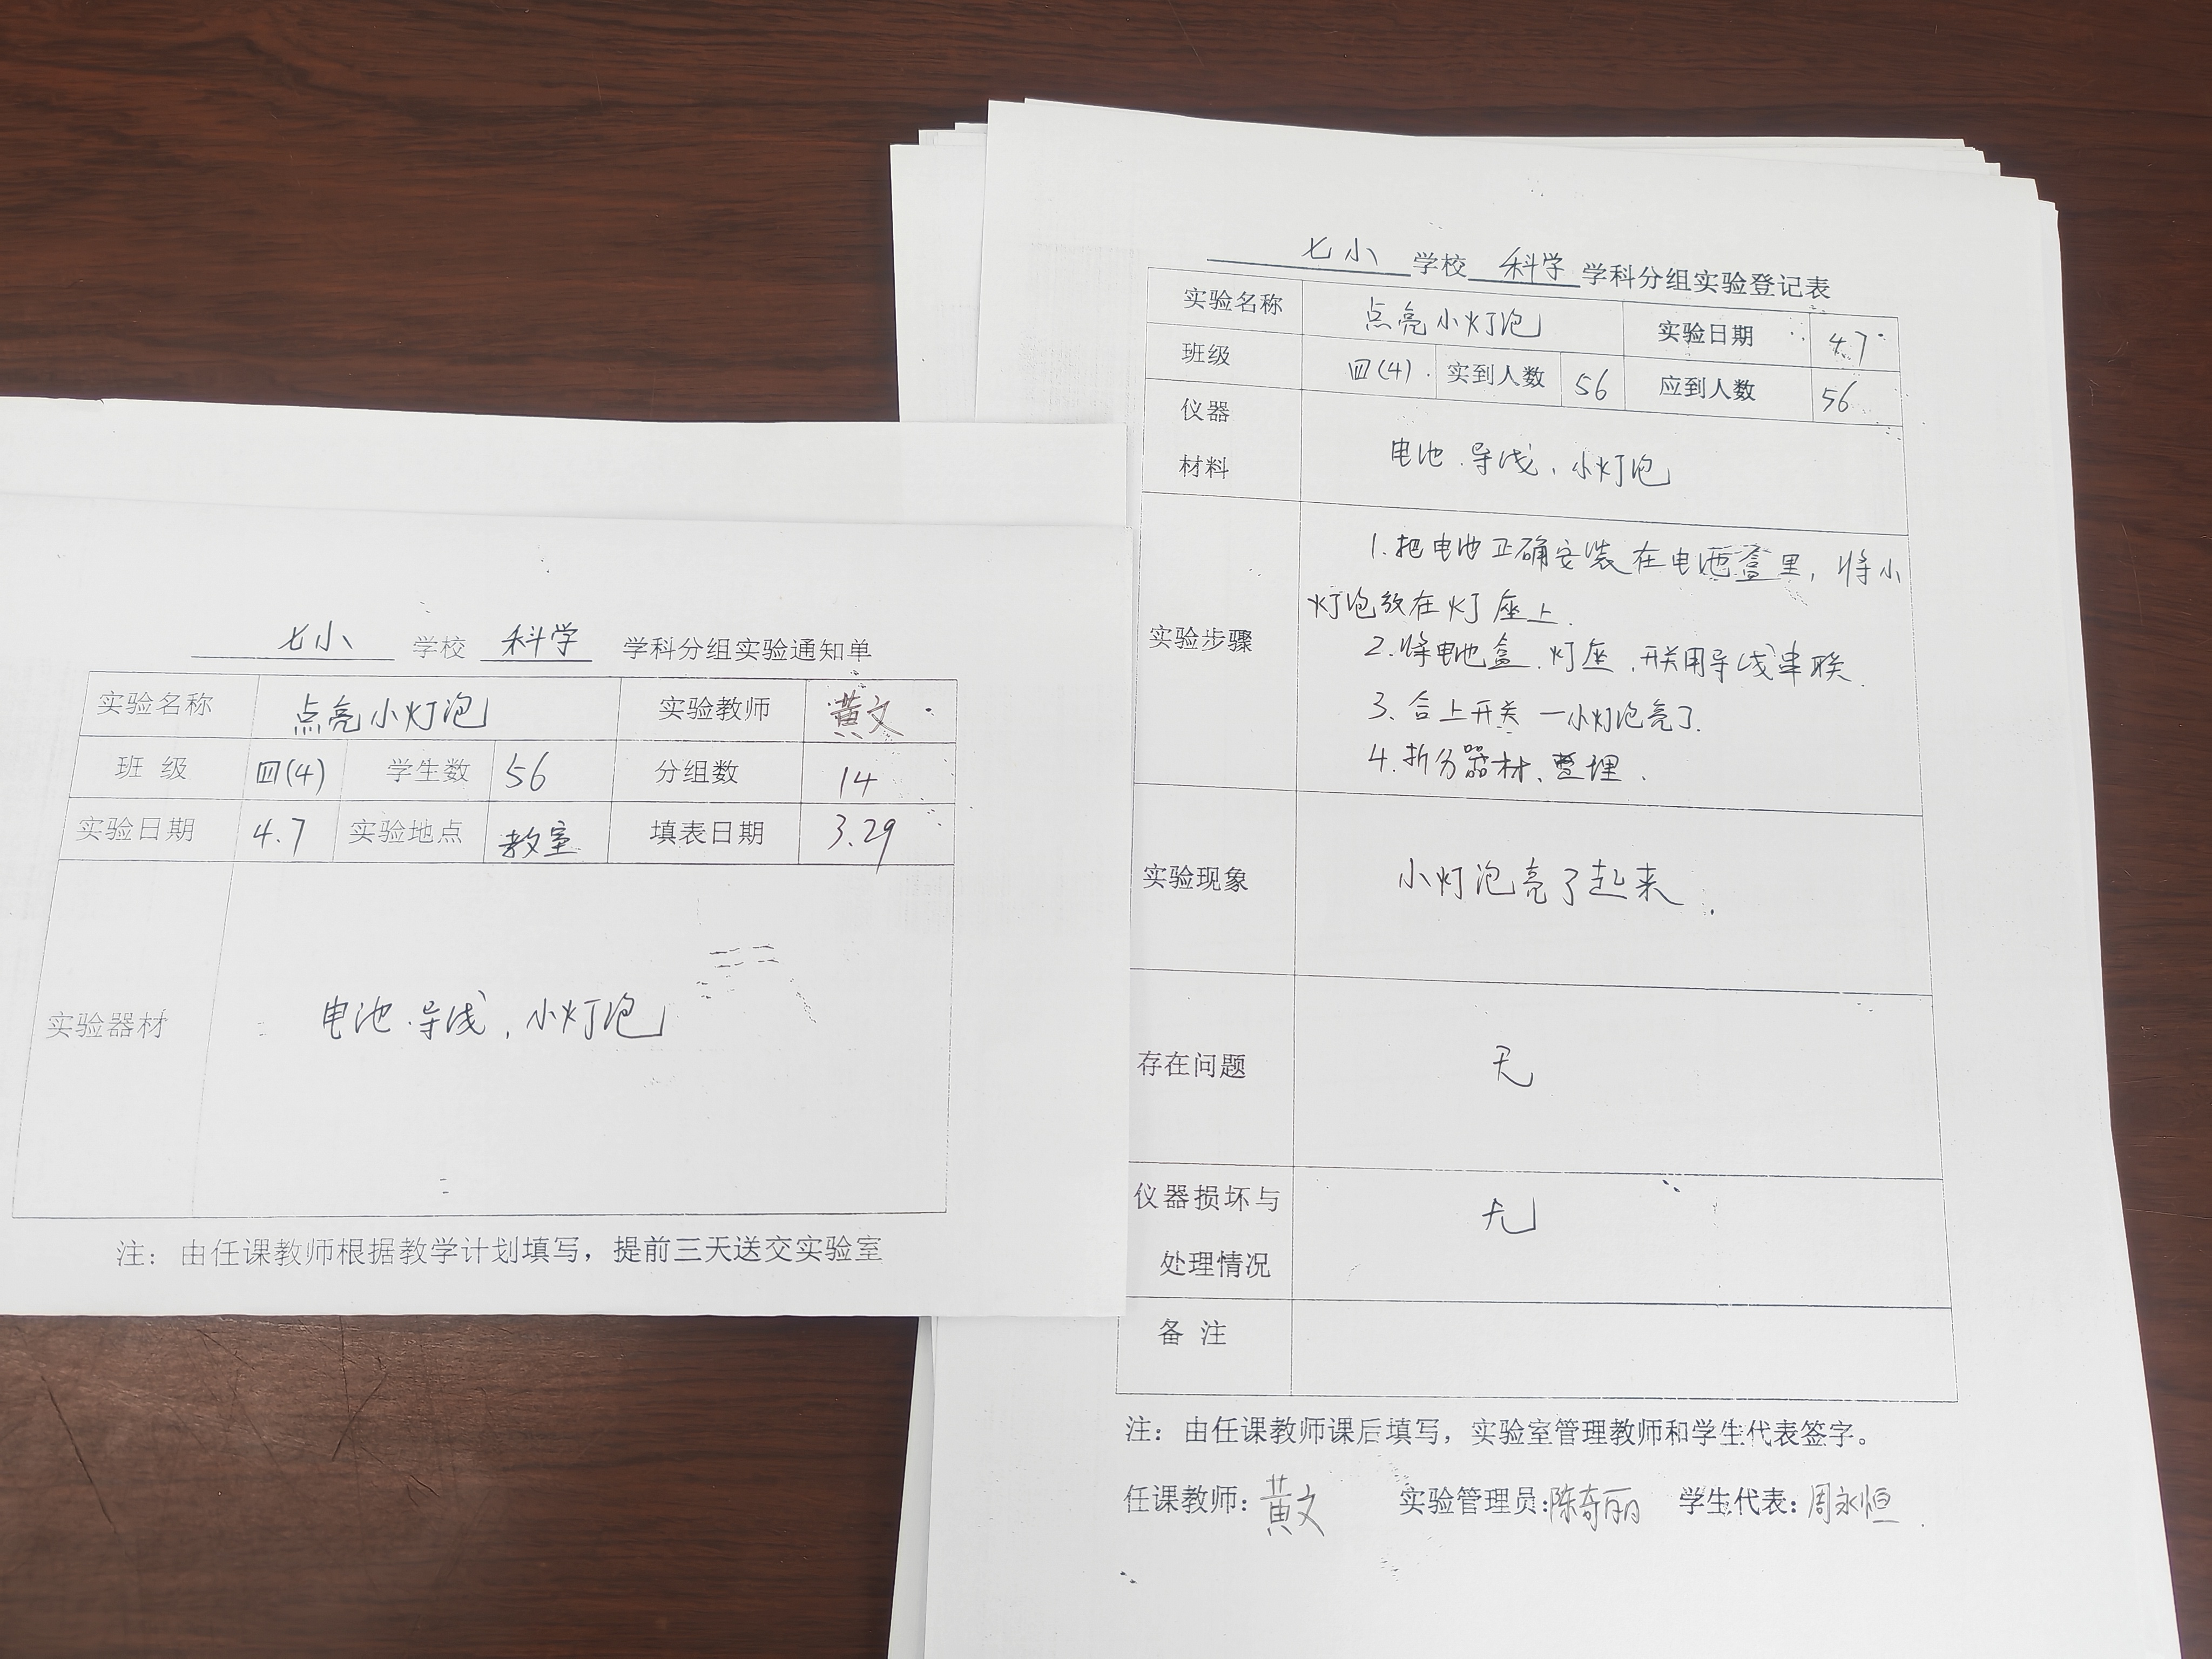 七小 学校 科学 学科分组实验通知单
实验名称 点亮小灯泡 实验教师 黄文
班 级 四(4) 学生数 56 分组数 14
实验日期 4.7 实验地点 教室 填表日期 3.29
实验器材 电池、导线,小灯泡
注:由任课教师根据教学计划填写,提前三天送交实验室
七小 学校 科学 学科分组实验登记表
实验名称 点亮小灯泡 实验日期 4.7
班级 四(4) 实到人数 56 应到人数 56
仪器
材料
电池、导线,小灯泡
实验步骤
1.把电池正确安装在电池盒里,将小
灯泡放在灯座上.
2.将电池盒、灯座、开关用导线串联.
3、合上开关—小灯泡亮了.
4.拆分器材、整理.
实验现象 小灯泡亮了起来.
存在问题 无
仪器损坏与
处理情况
无
备 注
注:由任课教师课后填写,实验室管理教师和学生代表签字。
任课教师:黄文 实验管理员:陈奇丽 学生代表:周永恒